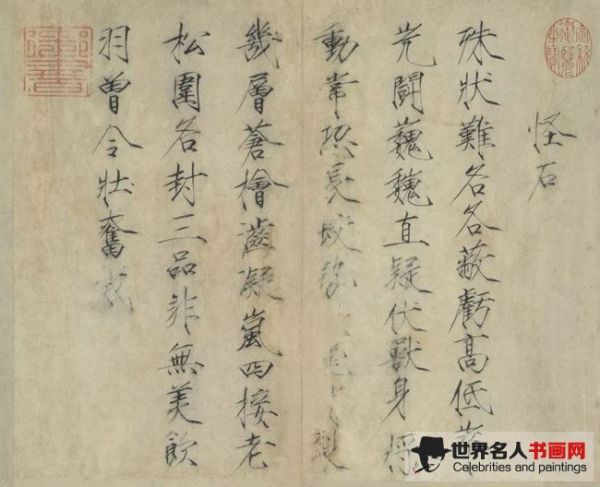 怪石
殊狀難各各蔽虧高低
鬭巍巍直疑伏獸身將
動常恐長蛟
幾層蒼檜凝嵐四接老
松圍各封三品非無美飲
羽曾令壯奮
世界名人书画网
Celebrities and paintings